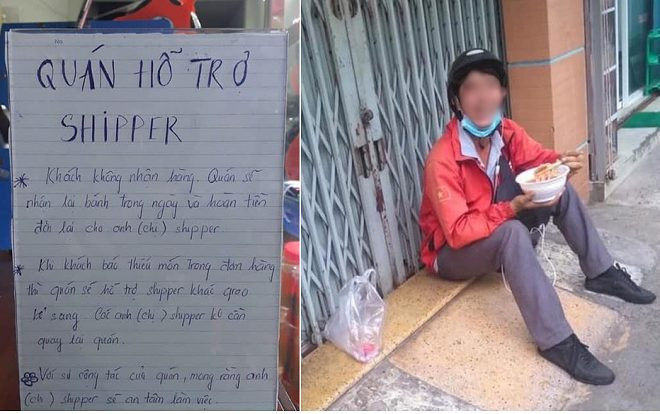 No
QUÁN HỖ TRỢ
SHIPPER
* Khách không nhận hàng. Quán sẽ
nhận lại bánh trong ngay và hoàn tiền
đổi lại cho anh (chị) shipper
* Khi khách báo thiếu món trong đơn hàng
thì quán sẽ hỗ trợ shipper khác giao
bổ sung. Các anh (chị) shipper kô cần
quay lại quán.
Với sự cộng tác của quán, mong rằng anh
(chị) shipper sẽ an tâm làm việc.